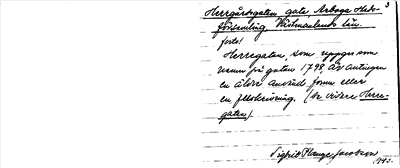 Herrgårdsgatan, gata, Arboga Heds- 3
församling, Västmanlands län.
forts!
Herregatan, som uppges som
namn på gatan 1798 är antingen
en äldre använd form eller
en felskrivning. (Se vidare Herre-
gatan)
Sigfrid Jacobson